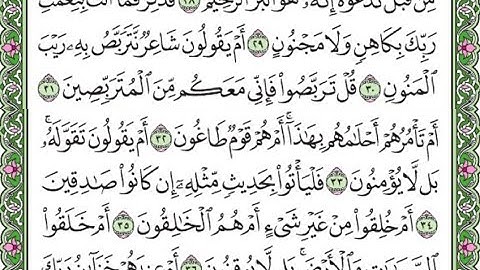 مِن قَبْلُ نَدْعُوهُ إِنَّهُ هُوَ الْبَرُّ الرَّحِيمُ ٢٨ فَذَكِّرْ فَمَا أَنتَ بِنِعْمَتِ
رَبِّكَ بِكَاهِنٍ وَلَا مَجْنُونٍ ٢٩ أَمْ يَقُولُونَ شَاعِرٌ نَّتَرَبَّصُ بِهِ رَيْبَ
الْمَنُونِ ٣٠ قُلْ تَرَبَّصُوا فَإِنِّي مَعَكُم مِّنَ الْمُتَرَبِّصِينَ ٣١
أَمْ تَأْمُرُهُمْ أَحْلَامُهُم بِهَٰذَا أَمْ هُمْ قَوْمٌ طَاغُونَ ٣٢ أَمْ يَقُولُونَ تَقَوَّلَهُ
بَل لَّا يُؤْمِنُونَ ٣٣ فَلْيَأْتُوا بِحَدِيثٍ مِّثْلِهِ إِن كَانُوا صَادِقِينَ
٣٤ أَمْ خُلِقُوا مِنْ غَيْرِ شَيْءٍ أَمْ هُمُ الْخَالِقُونَ ٣٥ أَمْ خَلَقُوا
السَّمَاوَاتِ وَالْأَرْضَ بَل لَّا يُوقِنُونَ ٣٦ أَمْ عِندَهُمْ خَزَائِنُ رَبِّكَ